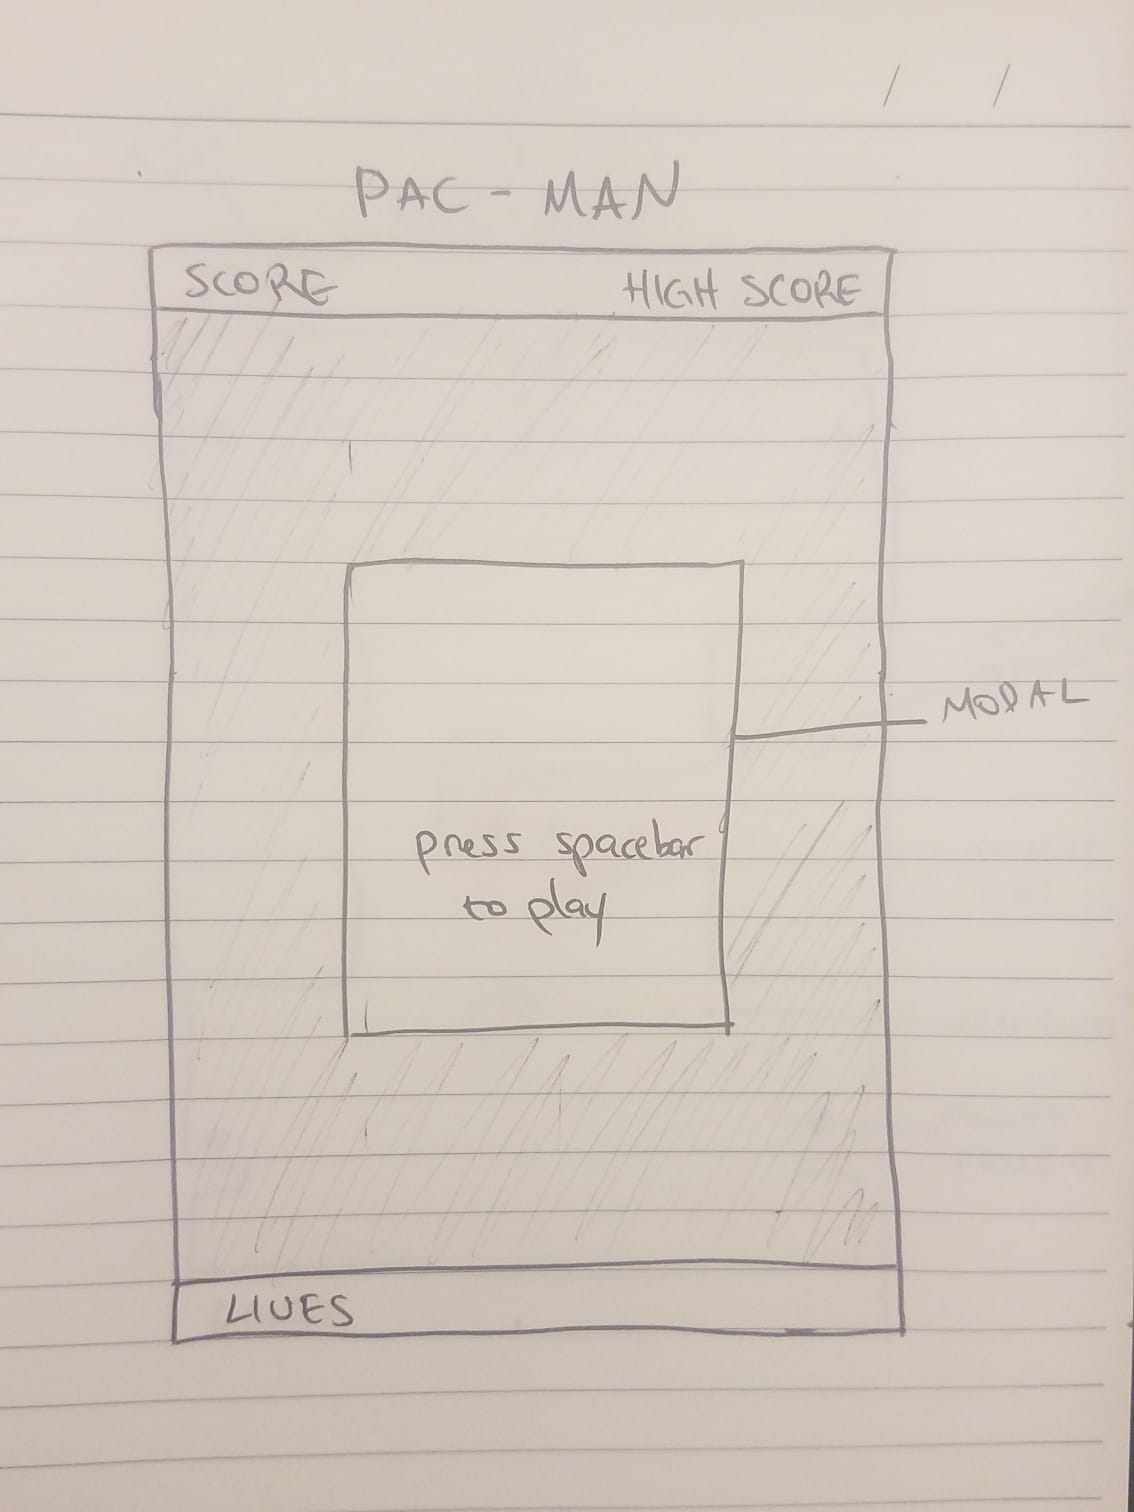 / /
PAC - MAN
SCORE HIGH SCORE
MODAL
press spacebar
to play
LIVES